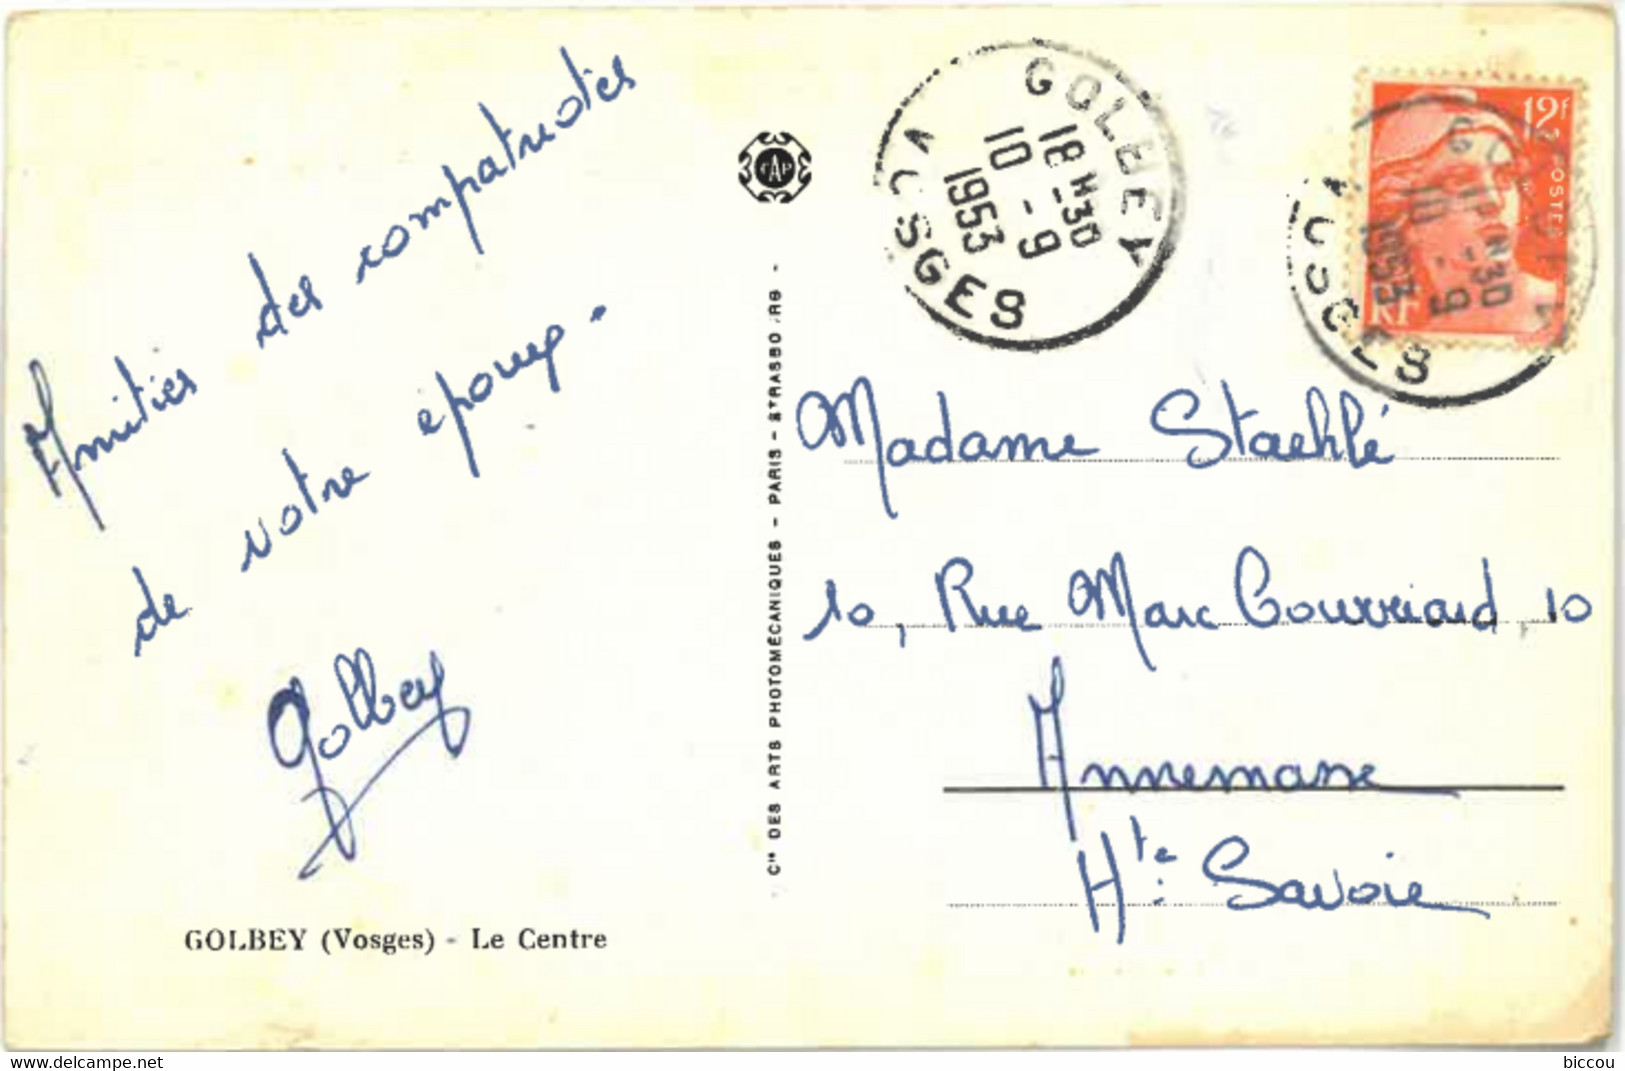 Amitiés des compatriotes
de votre époux.
Golbey
GOLBEY (Vosges) - Le Centre
CAP
Cie DES ARTS PHOTOMÉCANIQUES - PARIS - STRASBOURG -
GOLBEY
18H30
10-9
1953
VOSGES
12F
POSTES
RF
GOLBEY
18H30
10-9
1953
VOSGES
Madame Staehlé
10, Rue Marc Courriard, 10
Annemasse
Hte Savoie
delcampe.net
biccou